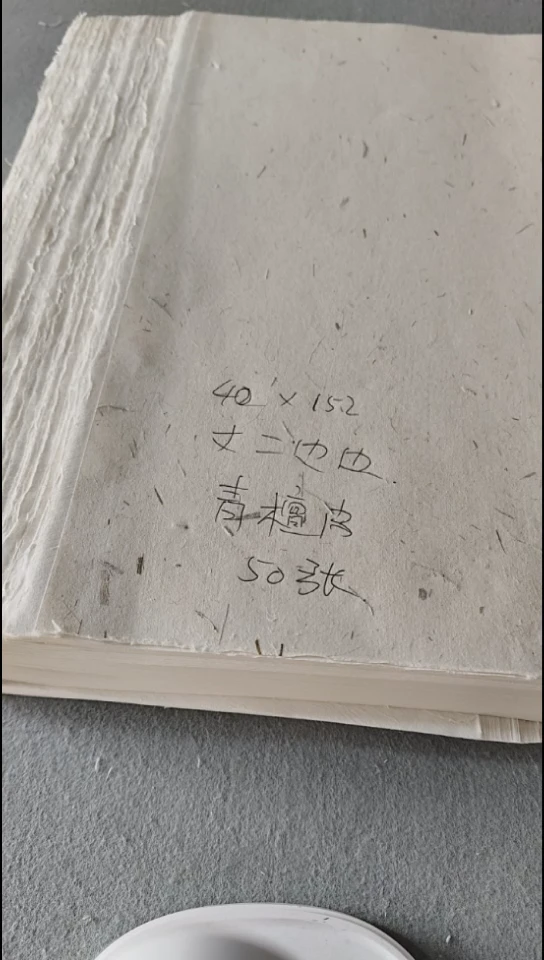 40×152
丈二边
青檀皮
50张